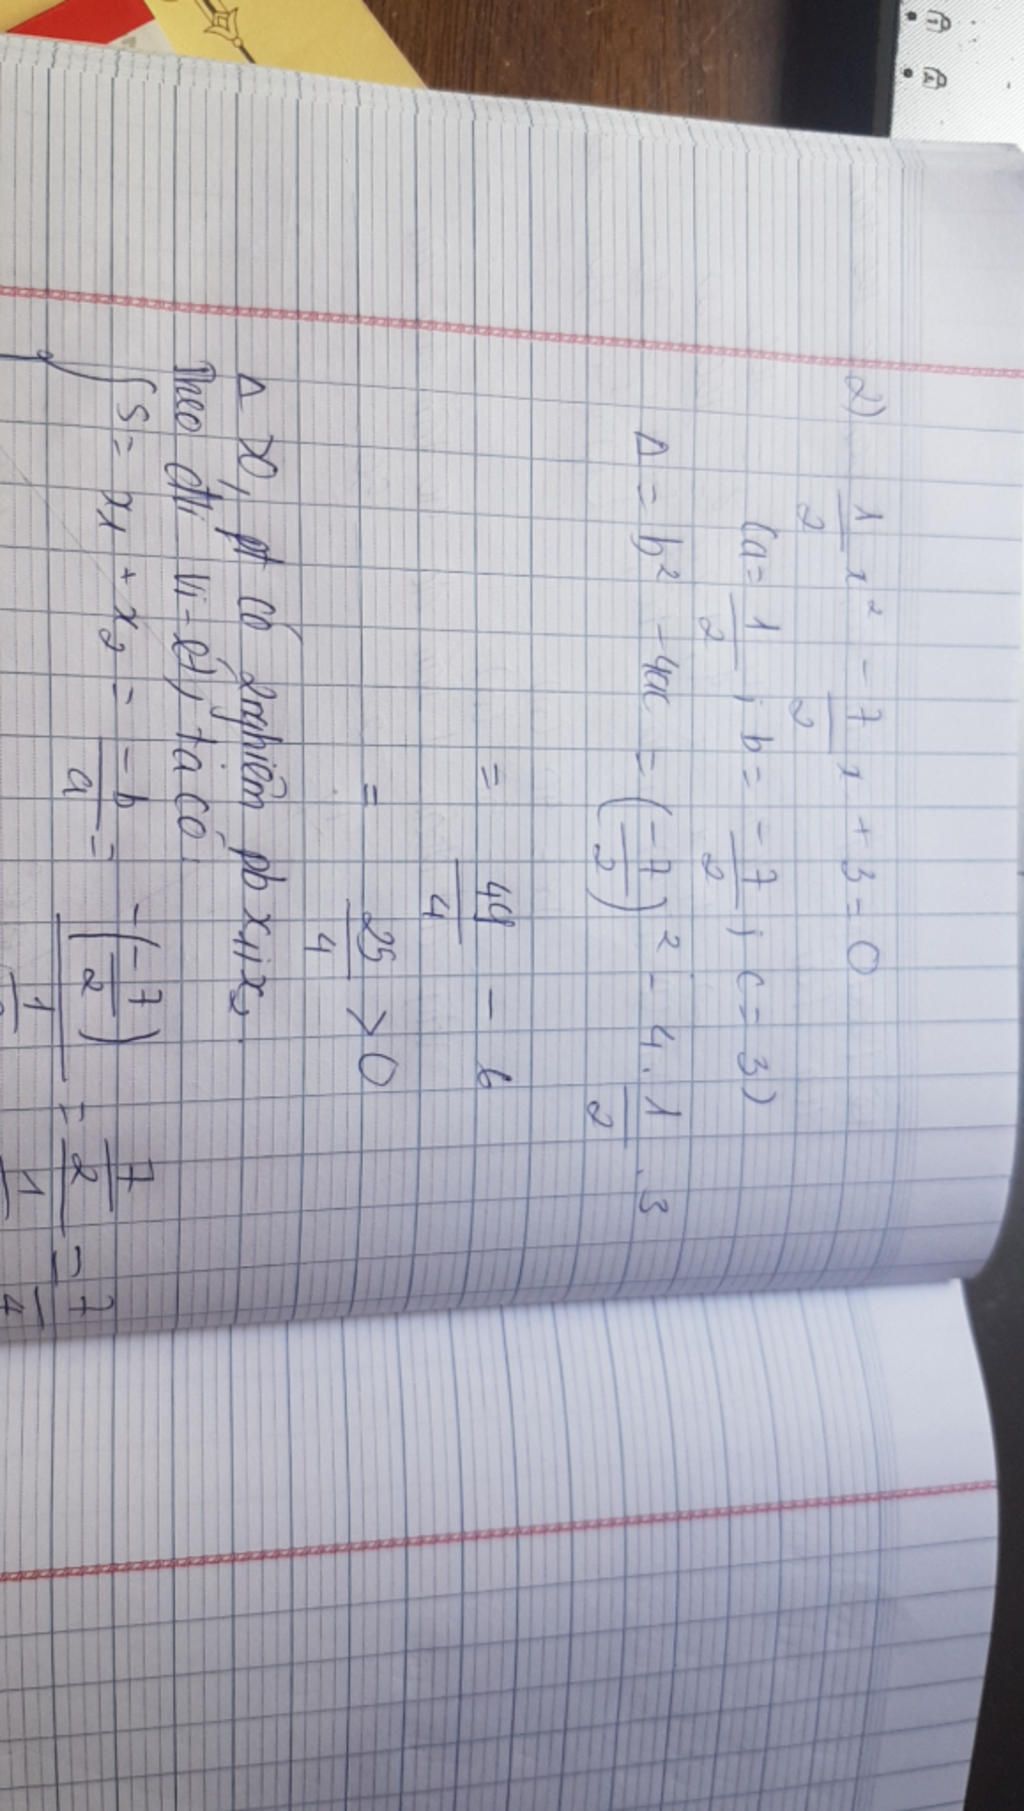 2) 1/2 x² - 7/2 x + 3 = 0
(a = 1/2 ; b = -7/2 ; c = 3)
Δ = b² - 4ac = (-7/2)² - 4. 1/2 .3
= 49/4 - 6
= 25/4 > 0
Δ >0, pt có 2 nghiệm pb x1, x2.
Theo đli Vi-ét, ta có:
S = x1 + x2 = -b/a = -(-7/2) / 1/2 = 7/2 / 1 = 7/4